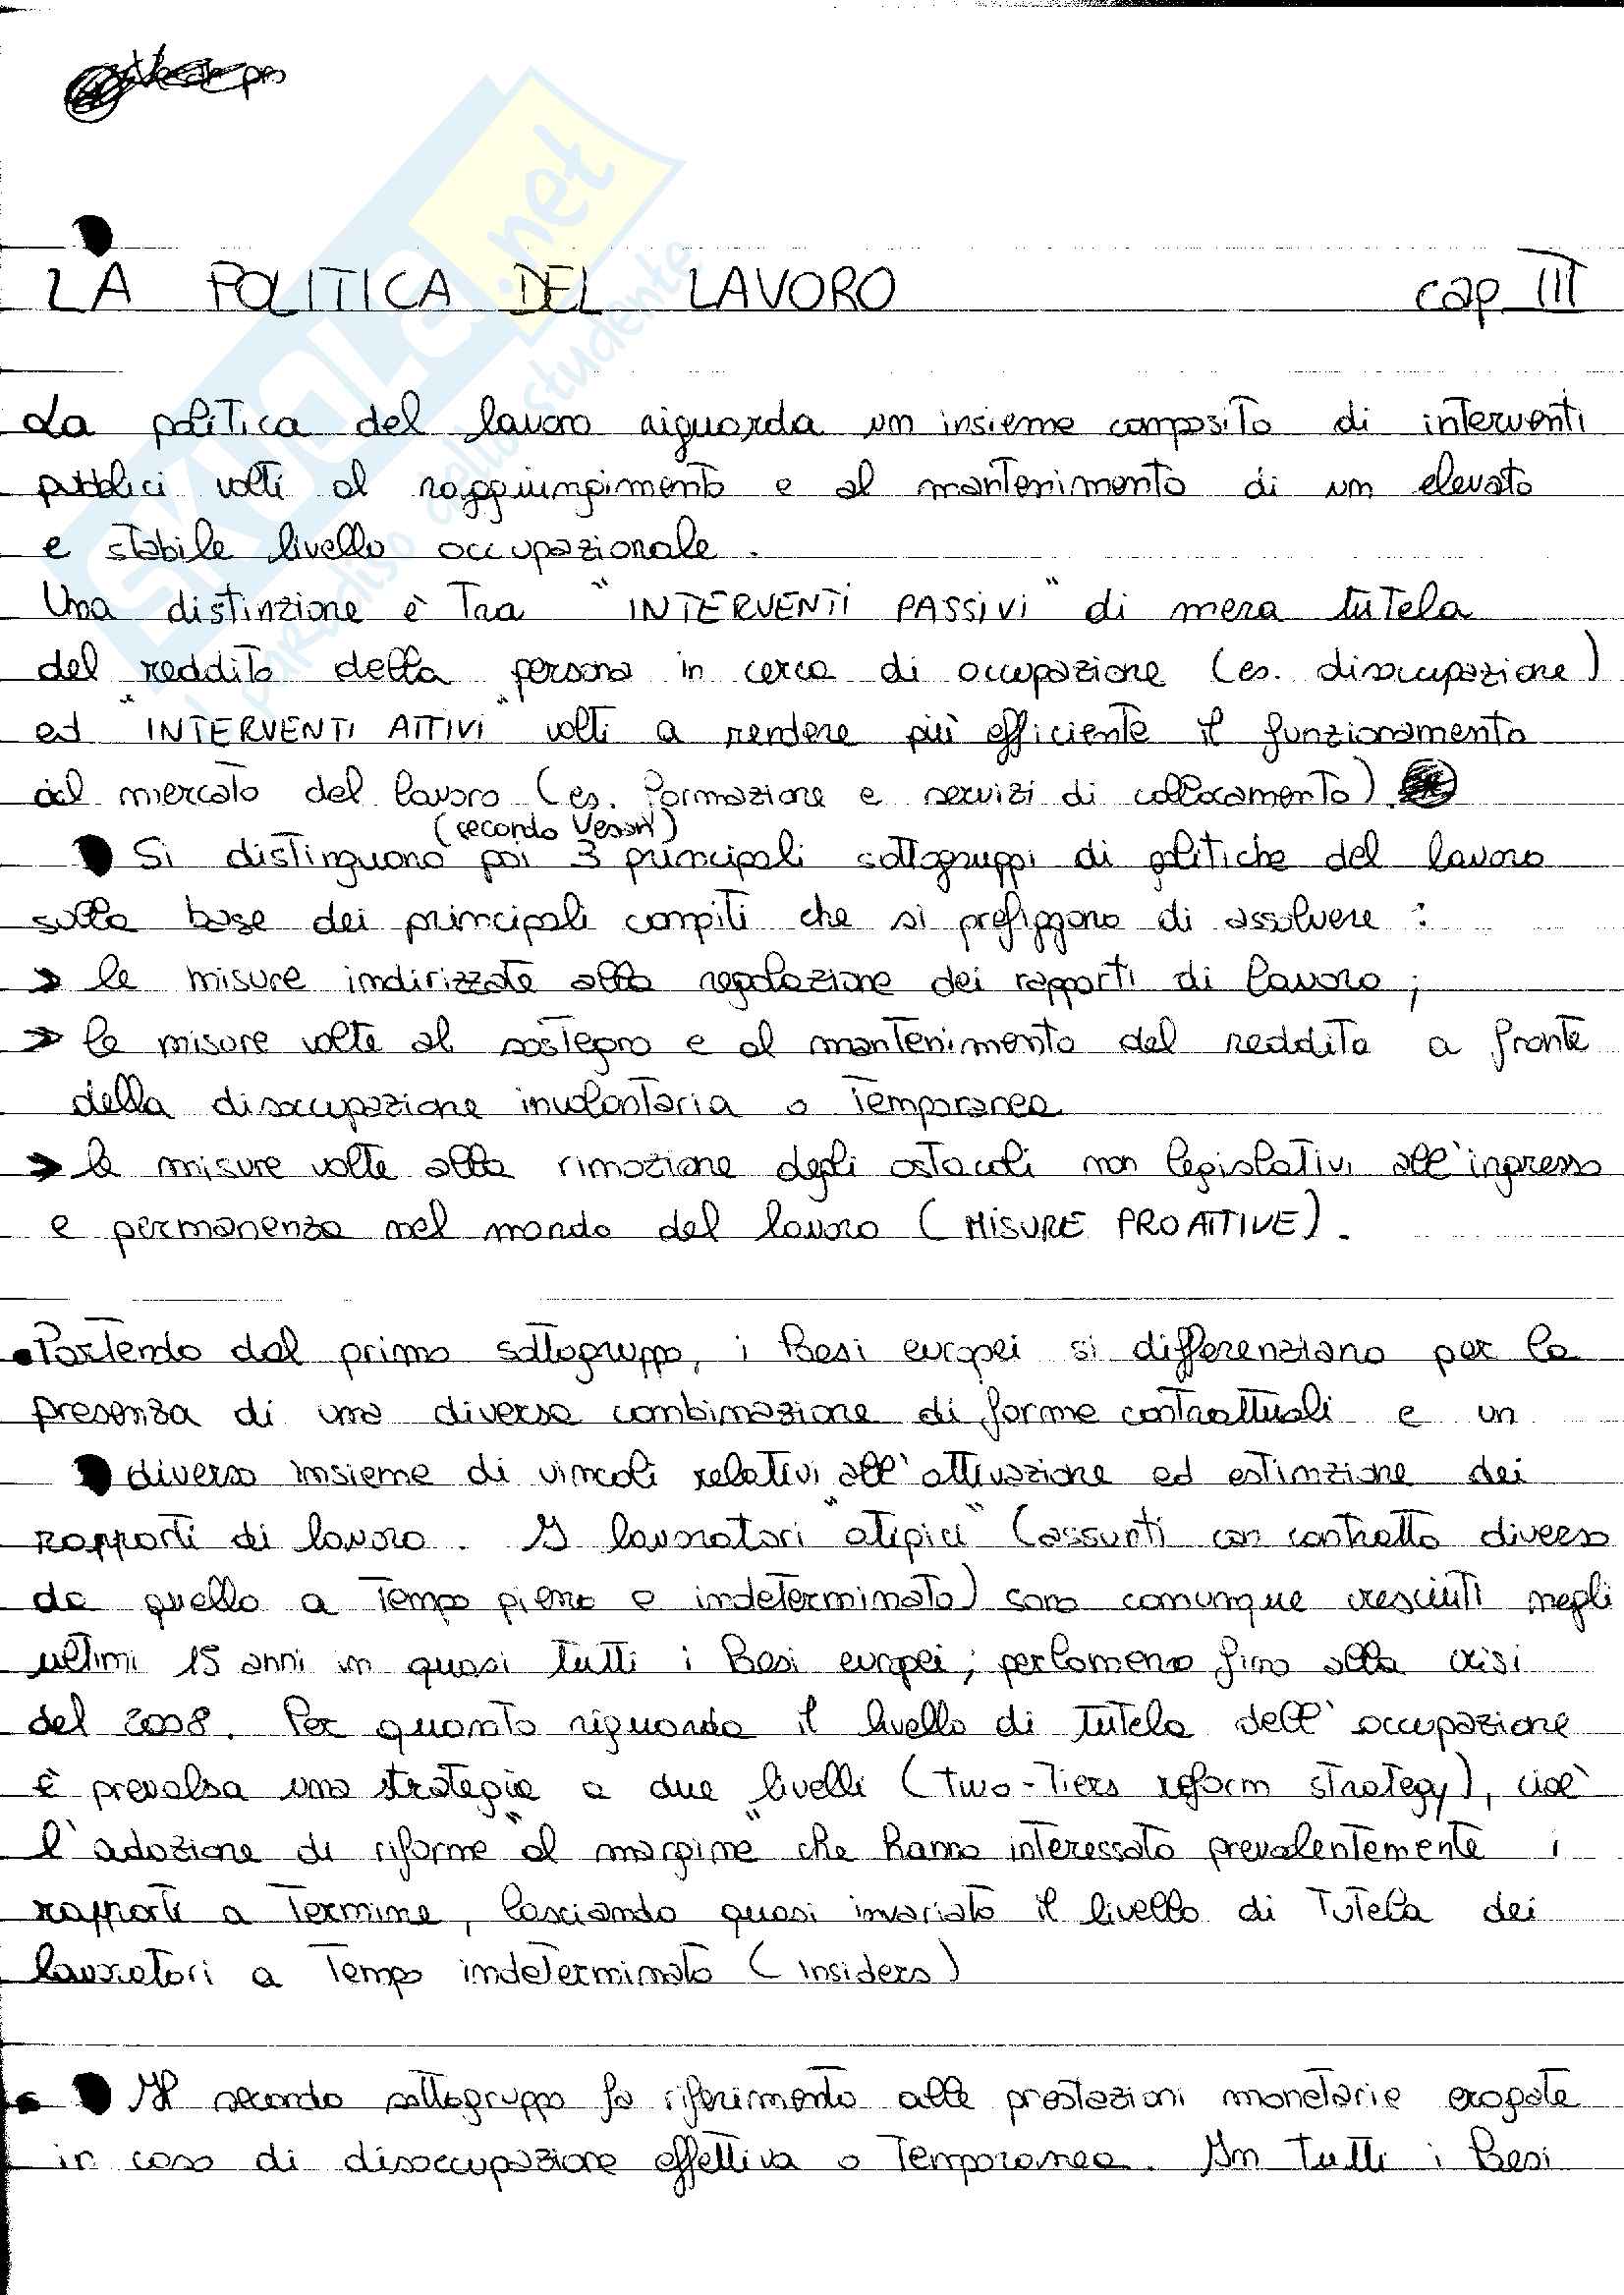 LA POLITICA DEL LAVORO cap III
La politica del lavoro riguarda un insieme composito di interventi
pubblici volti al raggiungimento e al mantenimento di un elevato
e stabile livello occupazionale.
Una distinzione è tra "INTERVENTI PASSIVI" di mera tutela
del reddito della persona in cerca di occupazione (es. disoccupazione)
ed "INTERVENTI ATTIVI" volti a rendere più efficiente il funzionamento
del mercato del lavoro (es. formazione e servizi di collocamento).
(secondo Vesan)
Si distinguono poi 3 principali sottogruppi di politiche del lavoro
sulla base dei principali compiti che si prefiggono di assolvere:
> le misure indirizzate alla regolazione dei rapporti di lavoro;
> le misure volte al sostegno e al mantenimento del reddito a fronte
della disoccupazione involontaria o temporanea
> le misure volte alla rimozione degli ostacoli non legislativi all'ingresso
e permanenza nel mondo del lavoro (MISURE PROATTIVE).
• Partendo dal primo sottogruppo, i Paesi europei si differenziano per la
presenza di una diversa combinazione di forme contrattuali e un
diverso insieme di vincoli relativi all'attivazione ed estinzione dei
rapporti di lavoro. I lavoratori "atipici" (assunti con contratto diverso
da quello a tempo pieno e indeterminato) sono comunque cresciuti negli
ultimi 15 anni in quasi tutti i Paesi europei, perlomeno fino alla crisi
del 2008. Per quanto riguarda il livello di tutela dell'occupazione
è prevalsa una strategia a due livelli (two-tiers reform strategy), cioè
l'adozione di riforme "al margine" che hanno interessato prevalentemente i
rapporti a termine, lasciando quasi invariato il livello di tutela dei
lavoratori a tempo indeterminato (insiders)
• Il secondo sottogruppo fa riferimento alle prestazioni monetarie erogate
in caso di disoccupazione effettiva o temporanea. In tutti i Paesi
SKUOLA.net
il paradiso dello studente